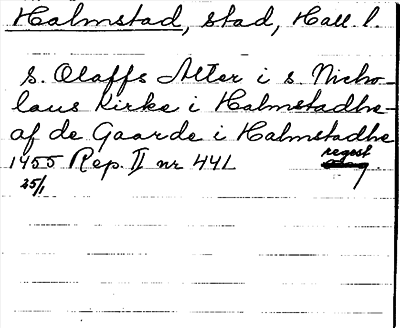 Halmstad, stad, Hall. l.
S. Olaffs Alter i s. Nicho-
laus kirke i Halmstadhe-
af de Gaarde i Halmstadhe
1455 Rep. II nr 441 regest
25/1